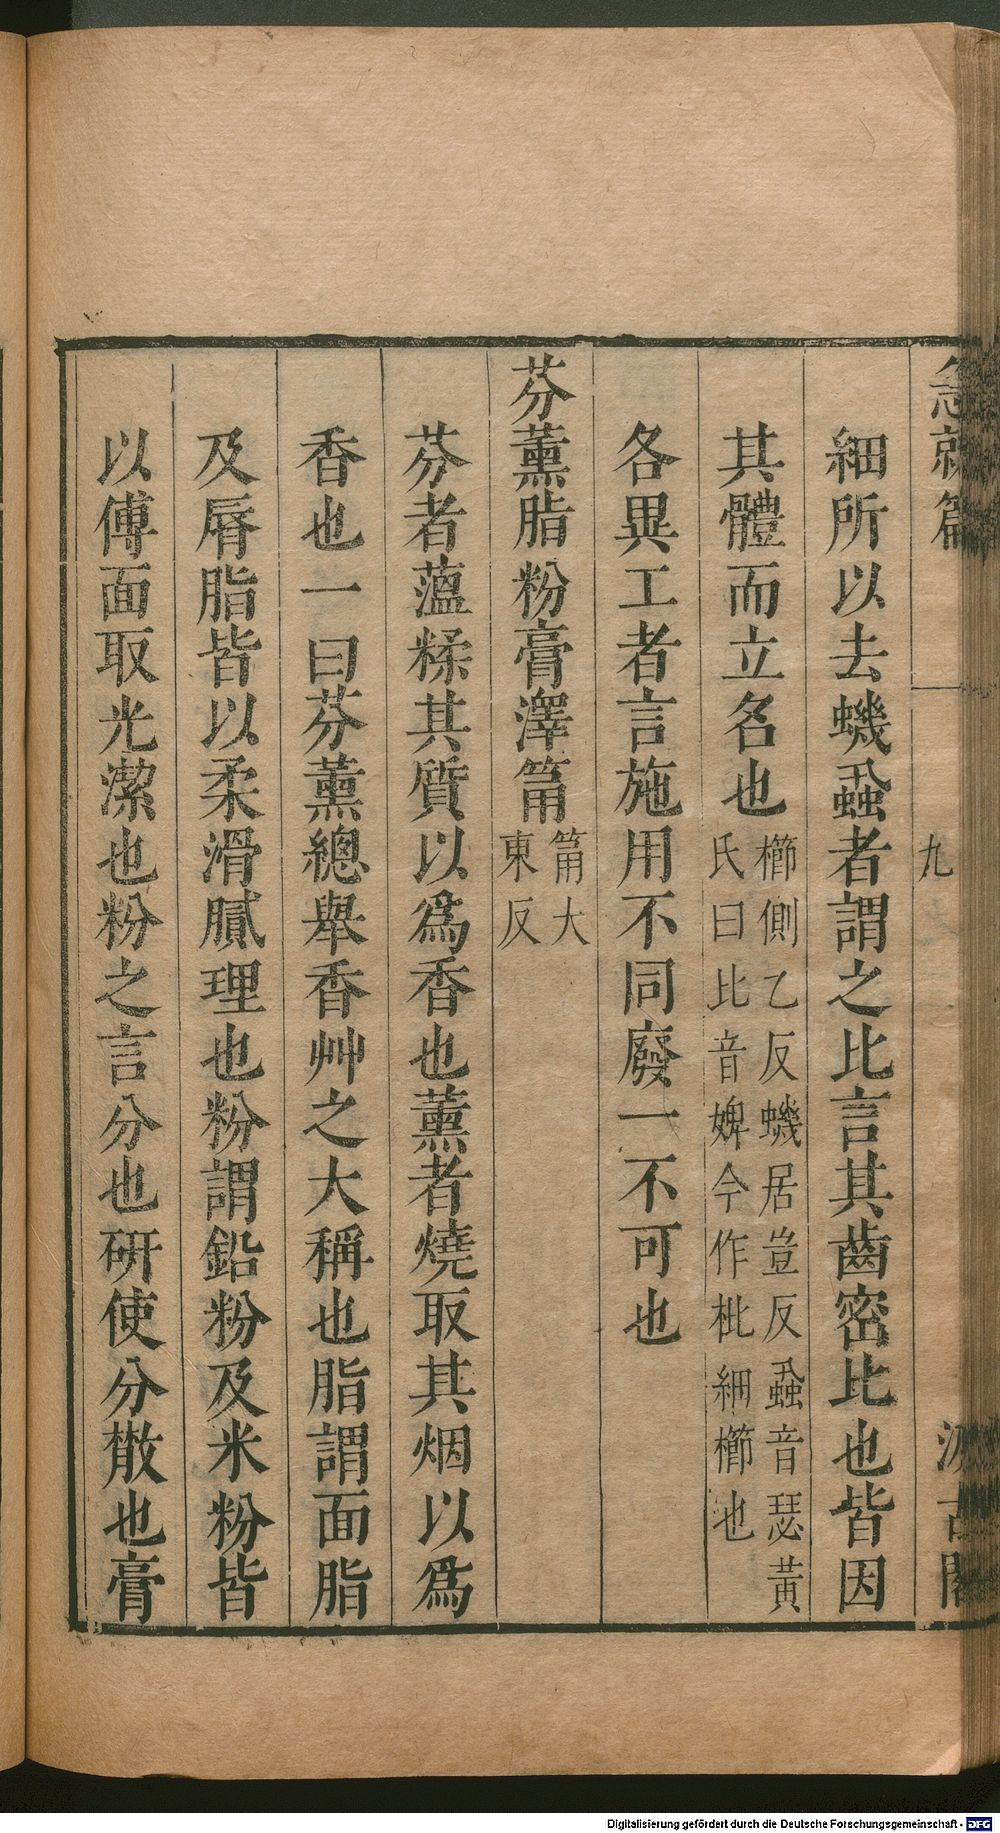 急就篇 九 汲古閣
細所以去蟣蝨者謂之比言其齒密比也皆因
其體而立名也櫛側乙反蟣居豈反蝨音瑟黃
氏曰比音婢今作枇細櫛也
各異工者言施用不同廢一不可也
芬薰脂粉膏澤筩筩大
東反
芬者蒀糅其質以爲香也薰者燒取其烟以爲
香也一曰芬薰總舉香艸之大稱也脂謂面脂
及脣脂皆以柔滑膩理也粉謂鉛粉及米粉皆
以傅面取光潔也粉之言分也研使分散也膏
Digitalisierung gefördert durch die Deutsche Forschungsgemeinschaft - DFG